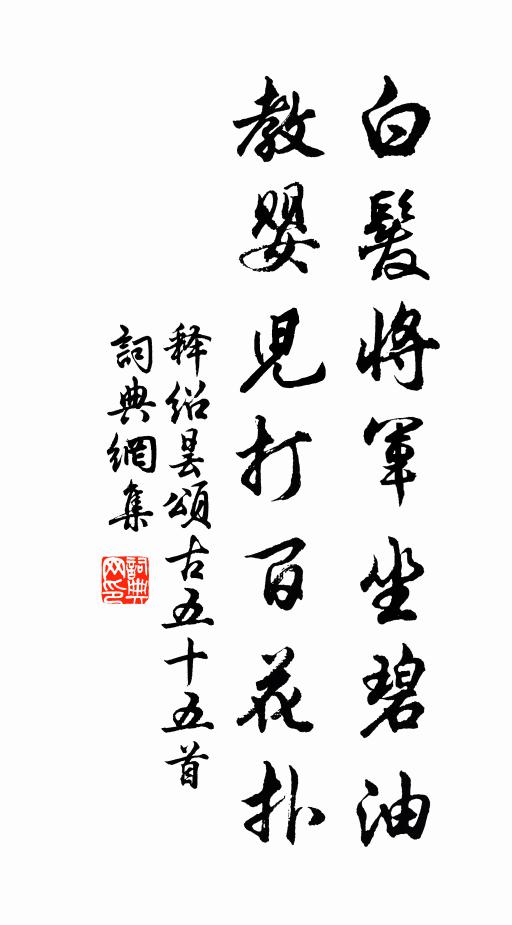 白髮將軍坐碧油
教嬰兒打百花扑
释绍昙頌古五十五首
詞典網集
詞典网印